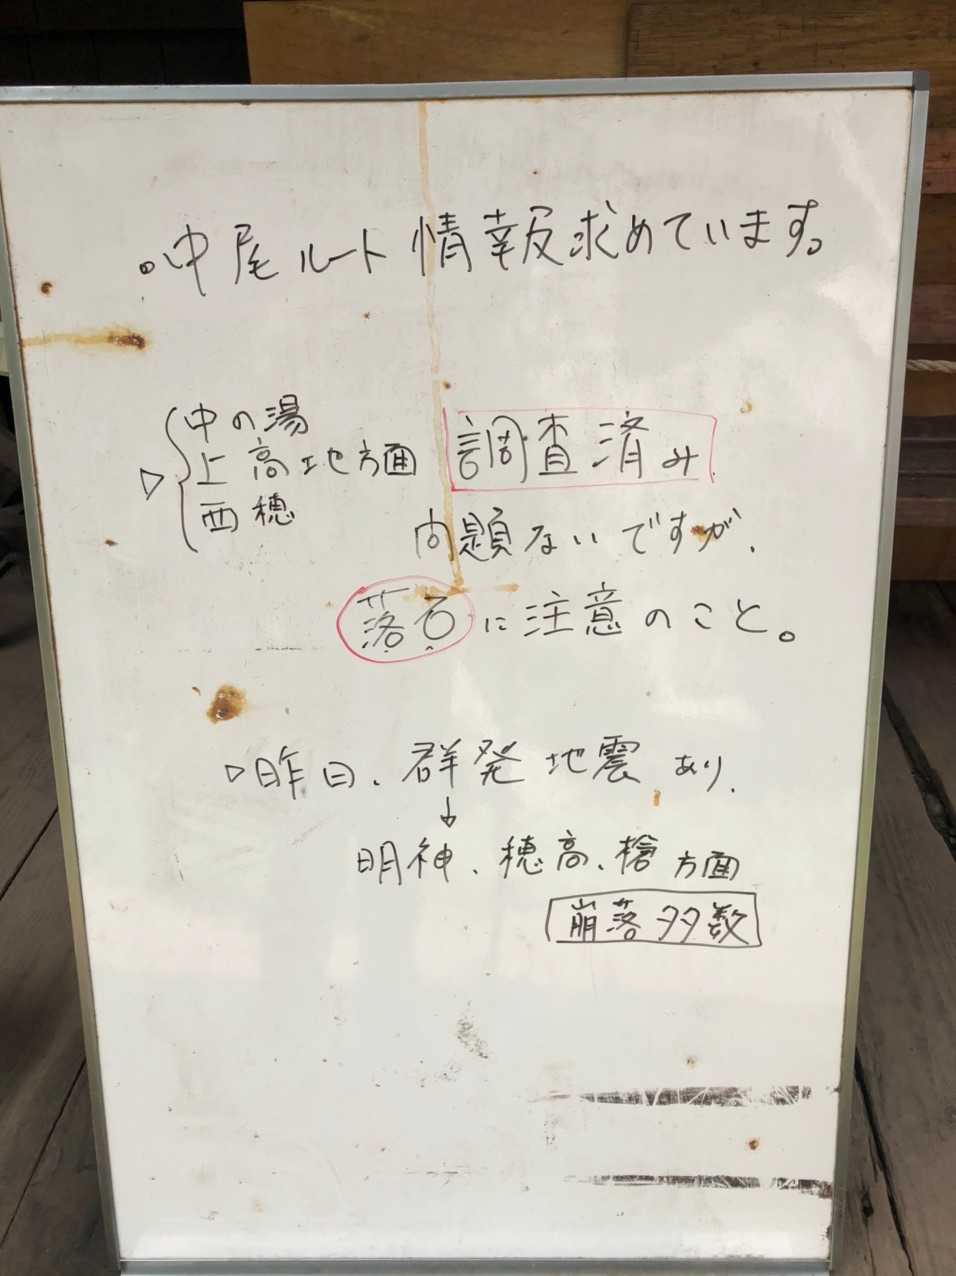 。中尾ルート情報求めています。
中の湯
▷ 上高地方面 調査済み
西穂
問題ないですが、
落石に注意のこと。
▷昨日、群発地震あり、
↓
明神、穂高、槍方面
崩落多数